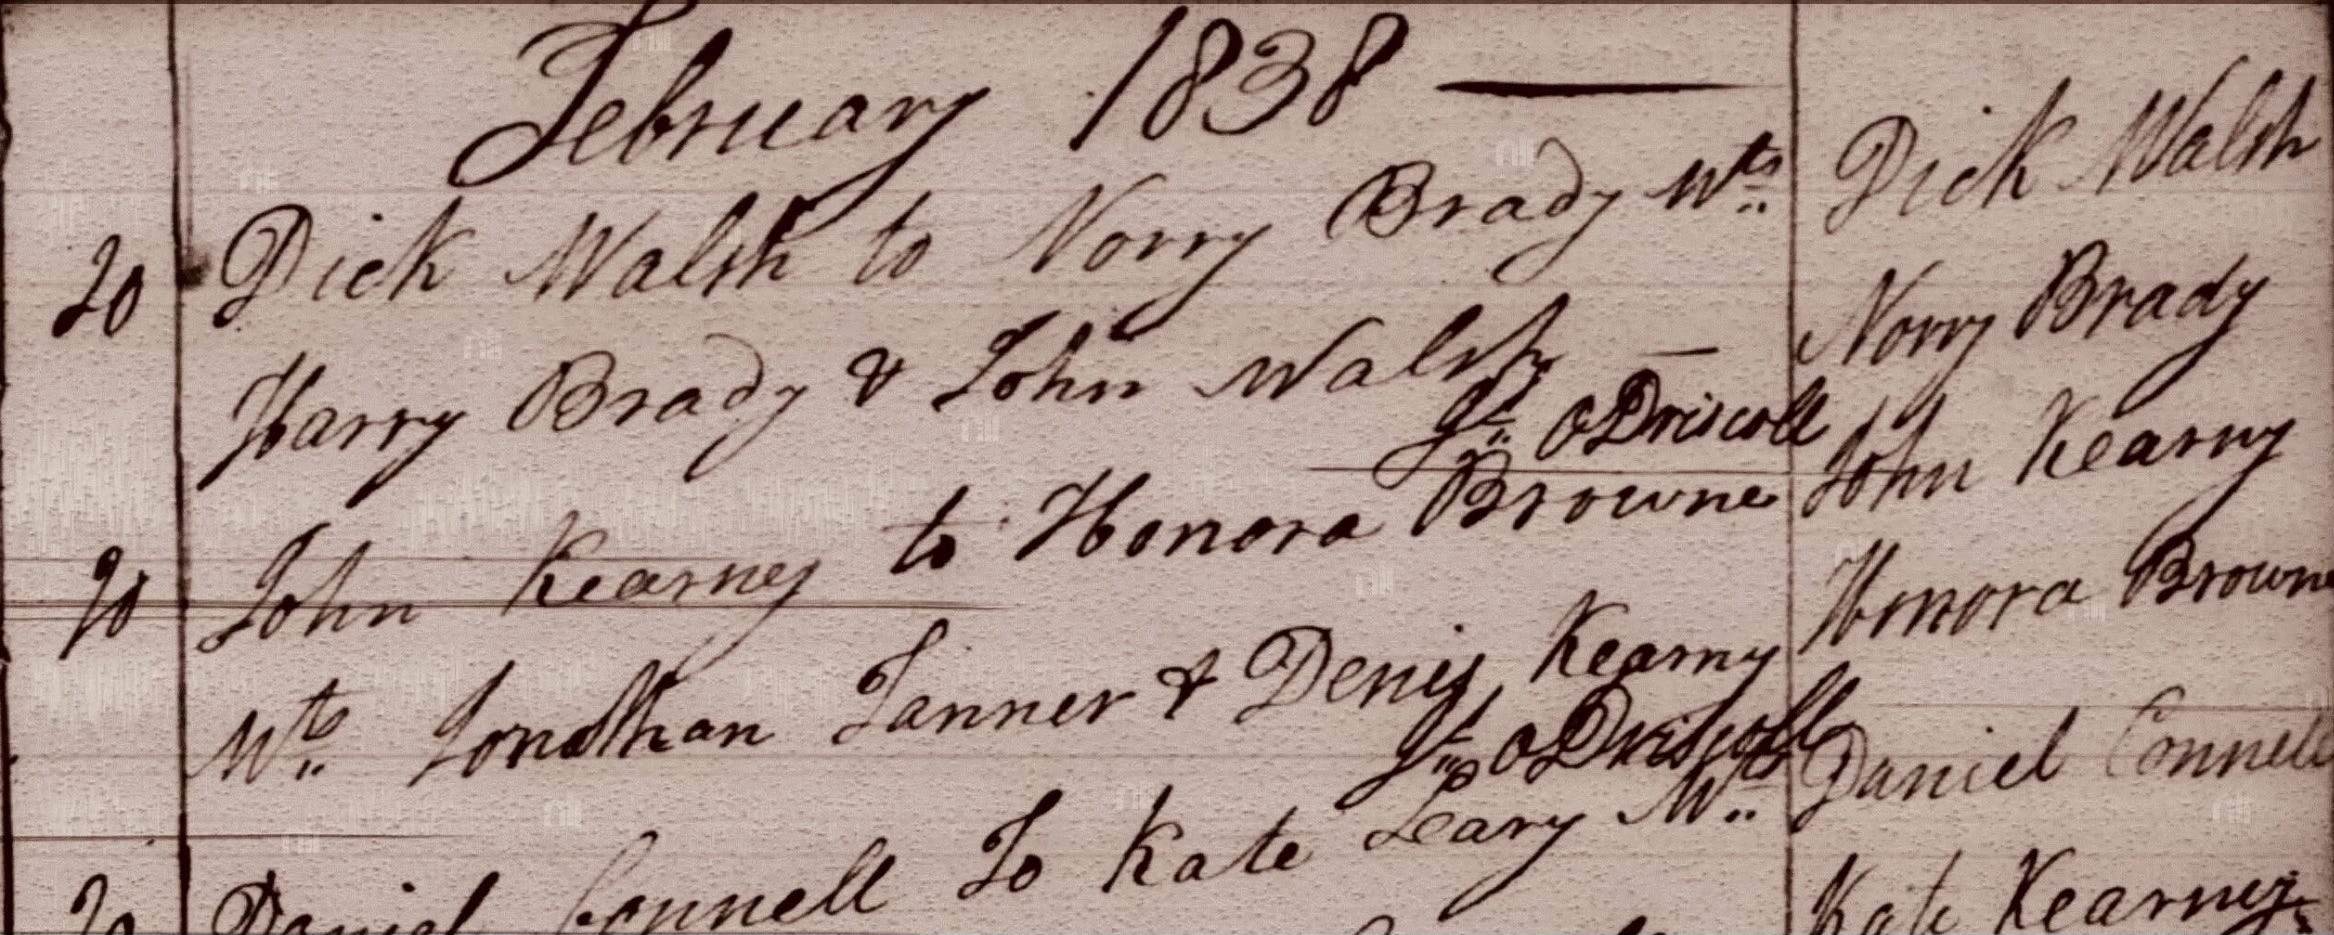 February 1838 —
20 Dick Walsh to Norry Brady Wts Dick Walsh
Harry Brady & John Walsh — Norry Brady
Jn ODriscoll
20 John Kearney to Honora Browne John Kearny
Wts Jonathan Tanner & Denis Kearny Honora Browne
Jn ODriscoll
20 Daniel Connell To Kate Leary Wts Daniel Connell
Kate Kearney